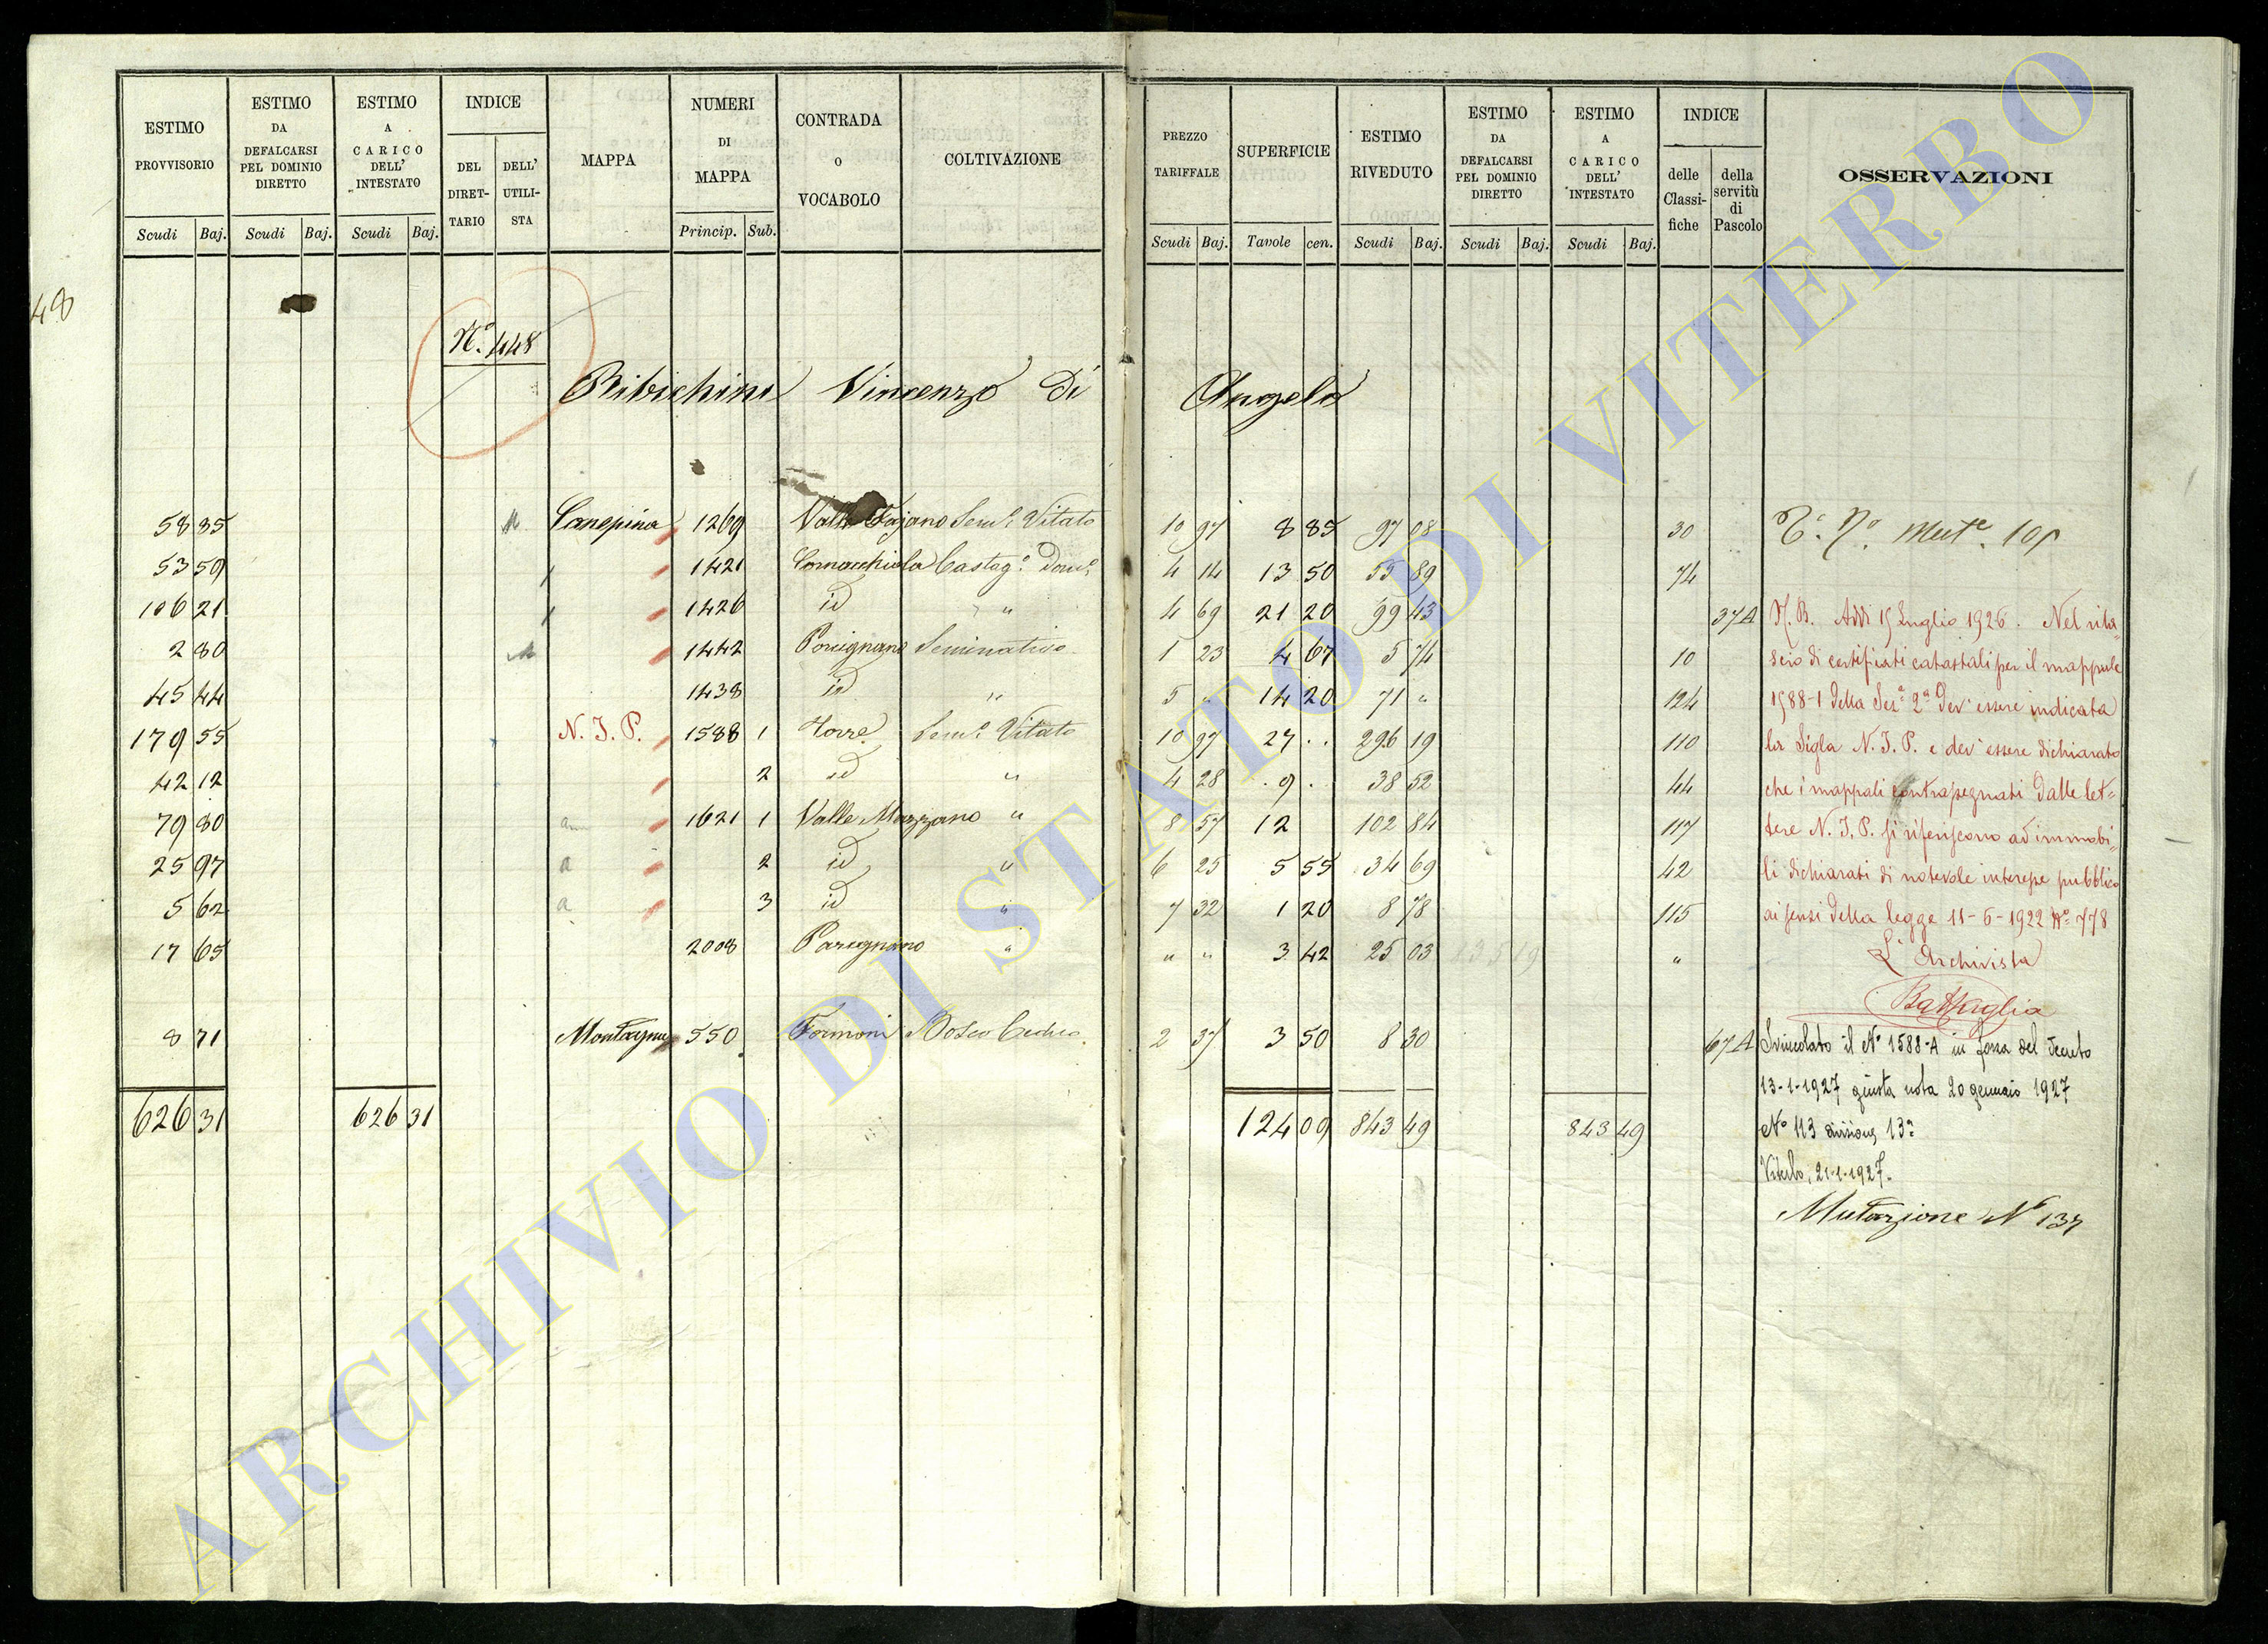 ESTIMO PROVVISORIO
ESTIMO DA DEFALCARSI PEL DOMINIO DIRETTO
ESTIMO A CARICO DELL' INTESTATO
INDICE
DEL DIRET-TARIO
DELL' UTILI-STA
MAPPA
NUMERI DI MAPPA
CONTRADA O VOCABOLO
COLTIVAZIONE
PREZZO TARIFFALE
SUPERFICIE
ESTIMO RIVEDUTO
ESTIMO DA DEFALCARSI PEL DOMINIO DIRETTO
ESTIMO A CARICO DELL' INTESTATO
INDICE
delle Classi-fiche
della servitù di Pascolo
OSSERVAZIONI
Scudi Baj. Scudi Baj. Scudi Baj. Princip. Sub. Scudi Baj. Tavole cen. Scudi Baj. Scudi Baj. Scudi Baj.
48
N.º 448
Ribichini Vincenzo di Angelo
58 85 Canepina 1269 Valle Fajano Sem.º Vitato 10 97 8 85 97 08 30
53 59 1421 Cornacchiola Castag.º Dom.º 4 14 13 50 55 89 74
106 21 1426 id " 4 69 21 20 99 43 37A
2 80 1442 Parignano Seminativo 1 23 4 67 5 74 10
45 44 1438 id " 5 " 14 20 71 " 124
179 55 N. I. P. 1588 1 Torre Sem.º Vitato 10 97 27 . . 296 19 110
42 12 2 id " 4 28 . 9 . 38 52 44
79 80 1621 1 Valle Mazzano " 8 57 12 102 84 117
25 97 a 2 id " 6 25 5 55 34 69 42
5 62 a 3 id " 7 32 1 20 8 78 115
17 65 2008 Parignano " " " 3 42 25 03 "
8 71 Montagna 550 Formoni Bosco Ceduo 2 37 3 50 8 30 67A
626 31 626 31 124 09 843 49 843 49
N. B. Addì 15 Luglio 1926. Nel rila=
scio di certificati catastali per il mappale
1588-1 della Sez.ª 2ª dev'essere indicata
la Sigla N. I. P. e dev'essere dichiarato
che i mappali contrassegnati dalle let=
tere N. I. P. si riferiscono ad immobi=
li dichiarati di notevole interesse pubblico
ai sensi della legge 11-6-1922 Nº 778
L'Archivista
Battaglia
Svincolato il Nº 1588-A in forza del Decreto
13-1-1927 giusta nota 20 gennaio 1927
Nº 113 divisione 13ª
Viterbo, 21-1-1927.
Mutazione Nº 137
ARCHIVIO DI STATO DI VITERBO